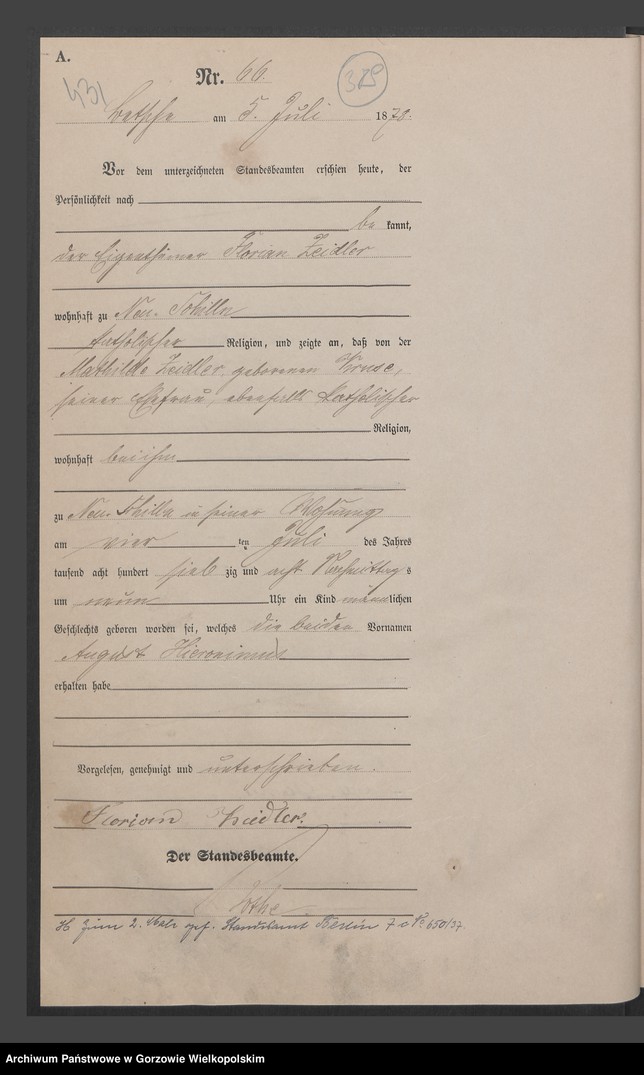 A.
431
Nr. 66.
Betsche am 5. Juli 1878.
Vor dem unterzeichneten Standesbeamten erschien heute, der
Persönlichkeit nach
be kannt,
der Eigenthümer Florian Zeidler
wohnhaft zu Neu-Schilln
katholischer Religion, und zeigte an, daß von der
Mathilde Zeidler geborenen Kruse,
seiner Ehefrau, ebenfalls katholischer
Religion,
wohnhaft bei ihm
zu Neu-Schilln in seiner Wohnung
am vier ten Juli des Jahres
tausend acht hundert sieb zig und acht Nachmittag s
um neun Uhr ein Kind männlichen
Geschlechts geboren worden sei, welches die beiden Vornamen
August Hieronimus
erhalten habe
Vorgelesen, genehmigt und unterschrieben.
Florian Zeidler.
Der Standesbeamte.
H zum 2. Male Standesamt Berlin 7a No 650/37
Archiwum Państwowe w Gorzowie Wielkopolskim